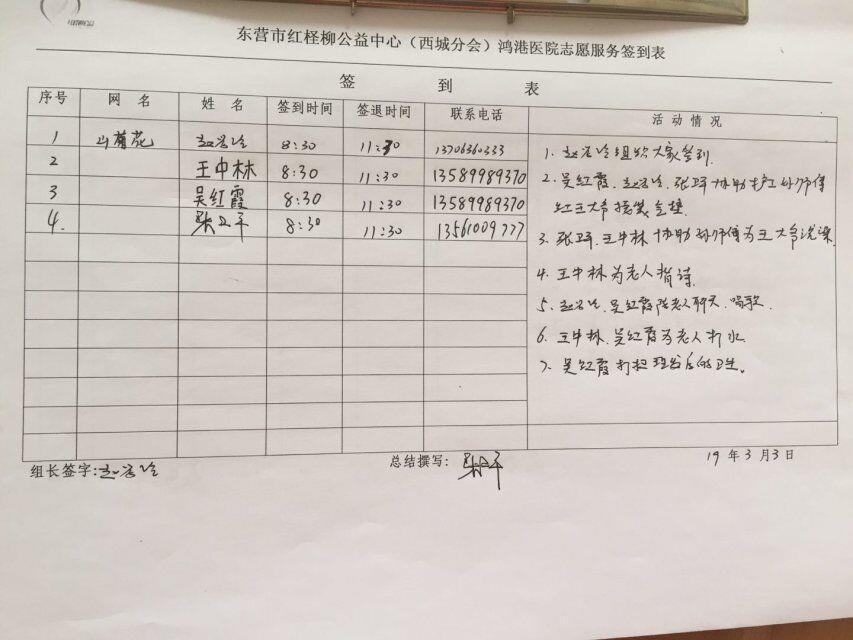 东营市红柽柳公益中心（西城分会）鸿港医院志愿服务签到表
签 到 表
序号 网 名 姓 名 签到时间 签退时间 联系电话 活 动 情 况
1 山菊花 8:30 11:30 13706360333
2 王中林 8:30 11:30 13589989370
3 吴红霞 8:30 11:30 13589989370
4. 张卫平 8:30 11:30 13561009777
1. 组织大家签到.
2. 吴红霞. 张卫平 协助护工孙师傅
给王大爷 垫
3. 张卫平. 王中林 协助孙师傅为王大爷洗澡.
4. 王中林为老人背诗.
5. 吴红霞陪老人聊天. 唱歌.
6. 王中林. 吴红霞为老人打水
7. 吴红霞打扫理发后的卫生。
组长签字:
总结撰写: 张卫平
19 年 3 月 3 日